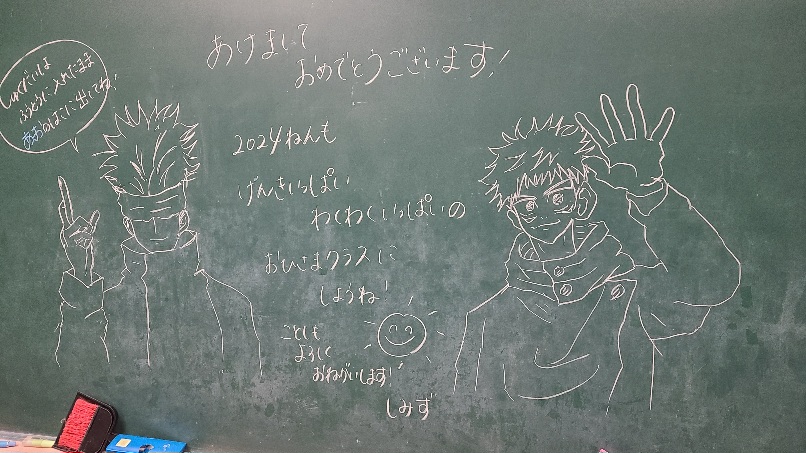 しゅくだいは
ふうとうに入れたまま
あおのはこに出してね!
あけまして
おめでとうございます!
2024ねんも
げんきいっぱい
わくわくいっぱいの
おひさまクラスに
しようね!
ことしも
よろしく
おねがいします!
しみず